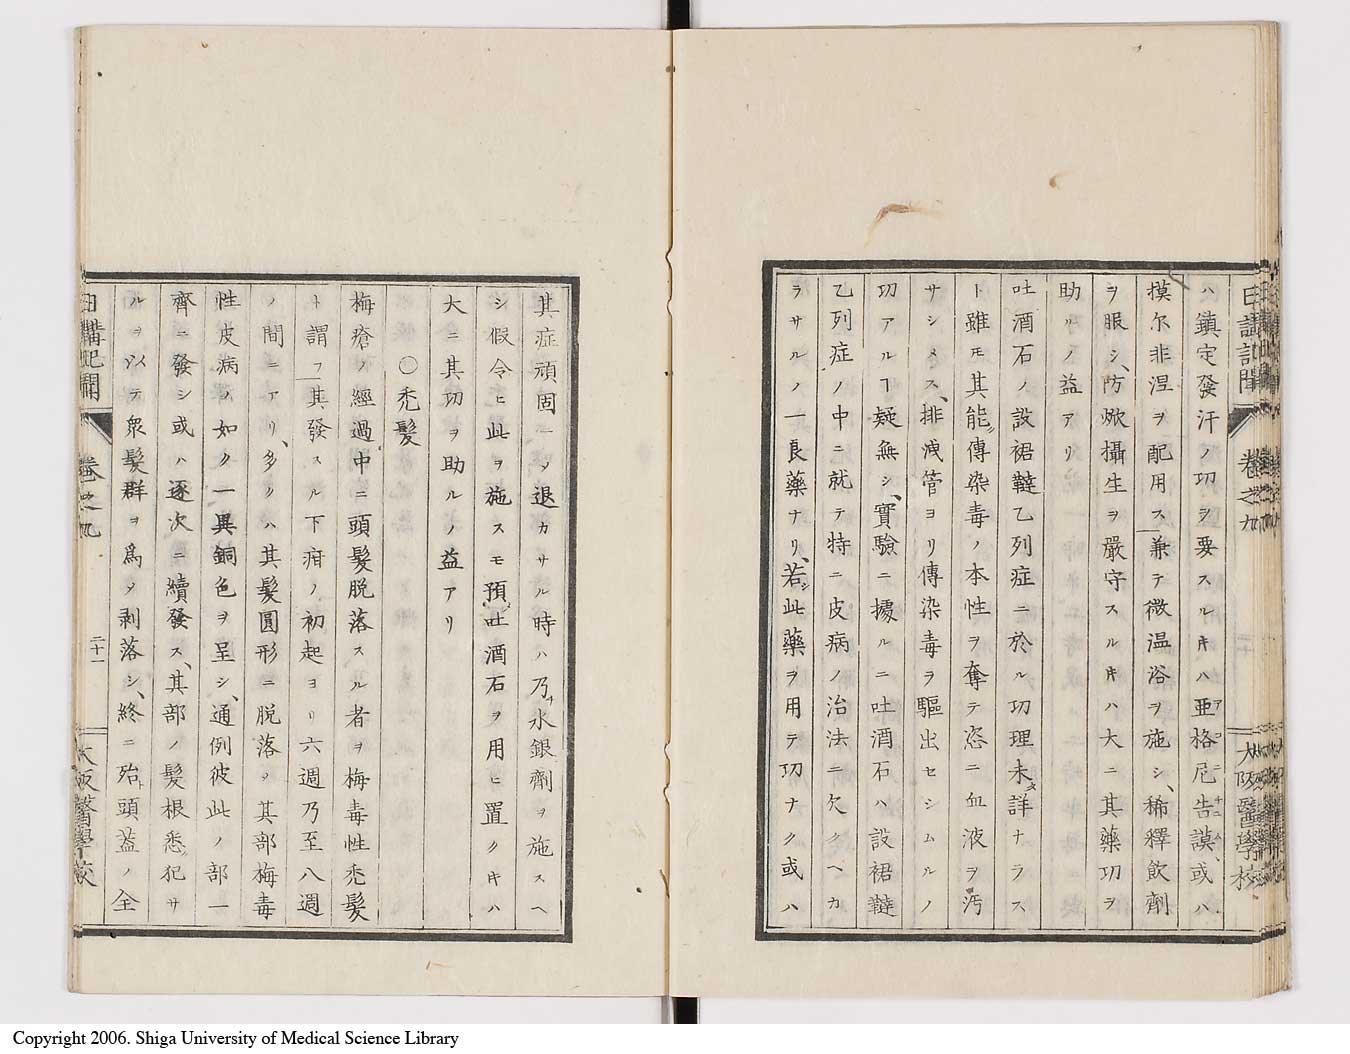 日講記聞 卷之九 大阪醫學校
ハ鎮定發汗ノ功ヲ要スルキハ亜格尼告謨或ハ
摸尓非涅ヲ配用ス兼テ微温浴ヲ施シ、稀釋飲劑
ヲ服シ、防焮攝生ヲ嚴守スルキハ大ニ其藥功ヲ
助リノ益アリ
吐酒石ノ設裙韃乙列症ニ於ル功理未タ詳ナラス
ト雖モ其能ク傳染毒ノ本性ヲ奪テ恣ニ血液ヲ汚
サシメス、排洩管ヨリ傳染毒ヲ驅出セシムルノ
功アルヿ疑無シ、實驗ニ據ルニ吐酒石ハ設裙韃
乙列症ノ中ニ就テ特ニ皮病ノ治法ニ欠クヘカ
ラサルノ一良藥ナリ、若シ此藥ヲ用テ功ナク或ハ
其症頑固ニノ退カサル時ハ乃チ水銀劑ヲ施スヘ
シ假令ヒ此ヲ施スモ預メ吐酒石ヲ用ヒ置クキハ
大ニ其功ヲ助ルノ益アリ
〇禿髮
梅瘡ノ經過中ニ頭髮脱落スル者ヲ梅毒性禿髮
ト謂フ其發スル下疳ノ初起ヨリ六週乃至八週
ノ間ニアリ、多クハ其髮圓形ニ脱落ノ其部梅毒
性皮病ノ如ク一異銅色ヲ呈シ、通例彼此ノ部一
齊ニ發シ或ハ逐次ニ續發ス、其部ノ髮根悉ク犯サ
ルヲ以テ衆髮群ヲ爲ノ剥落シ、終ニ殆ト頭蓋ノ全
日講記聞 卷之九 二十一 大阪醫學校
Copyright 2006. Shiga University of Medical Science Library